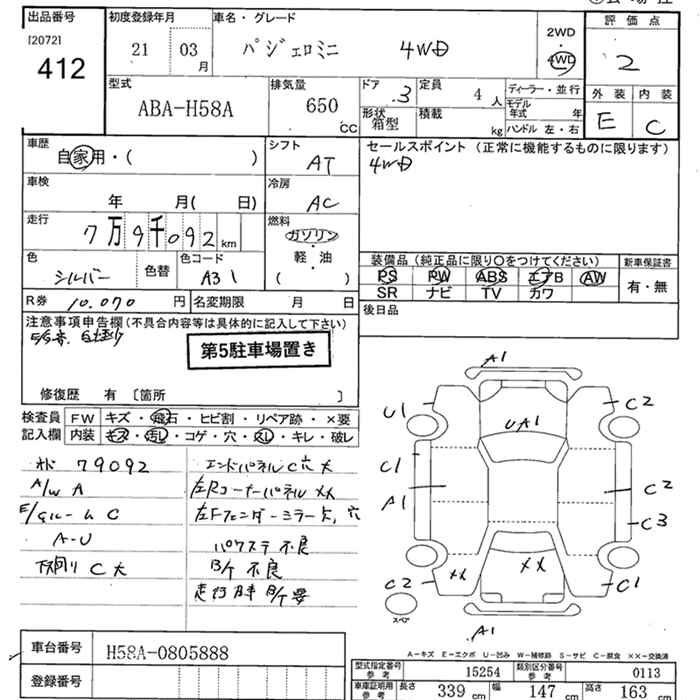 出品番号 初度登録年月 車名・グレード 評価点
[2072] 412
21 03月 パジェロミニ 4WD
2WD・4WD
2
型式 ABA-H58A
排気量 650 CC
ドア 3 定員 4人
形状 箱型 積載 kg
ディーラー・並行
モデル年式 年
ハンドル 左・右
外装 内装
E C
車歴 自家用・( )
シフト AT
セールスポイント(正常に機能するものに限ります)
4WD
車検 年 月( 日)
冷房 AC
走行 7万9千092 km
燃料 ガソリン・軽油 ( )
色 シルバー 色替 色コード A31
装備品(純正品に限り○をつけてください) 新車保証書
PS PW ABS エアB AW 有・無
SR ナビ TV カワ
R券 10.070 円 名変期限 月 日
後日品
注意事項申告欄(不具合内容等は具体的に記入して下さい)
第5駐車場置き
修復歴 有 〔箇所 〕
検査員 FW キズ・飛石・ヒビ割・リペア跡・×要
記入欄 内装 キズ・汚し・コゲ・穴・スレ・キレ・破レ
79092 エンドパネルC穴大
A/W A 左Rコーナーパネル XX
E/gルーム C 左Fフェンダーミラー欠,穴
A-U パワステ不良
下廻り C大 B/K 不良
A1
U1 C2
UA1
C1 C2
A1 C3
XX XX
C2 C1
スペア
A1
A-キズ E-エクボ U-凹み W-補修跡 S-サビ C-腐食 XX-交換済
車台番号 H58A-0805888
登録番号
型式指定番号 参考 15254 類別区分番号 参考 0113
車庫証明用 参考 長さ 339 cm 幅 147 cm 高さ 163 cm